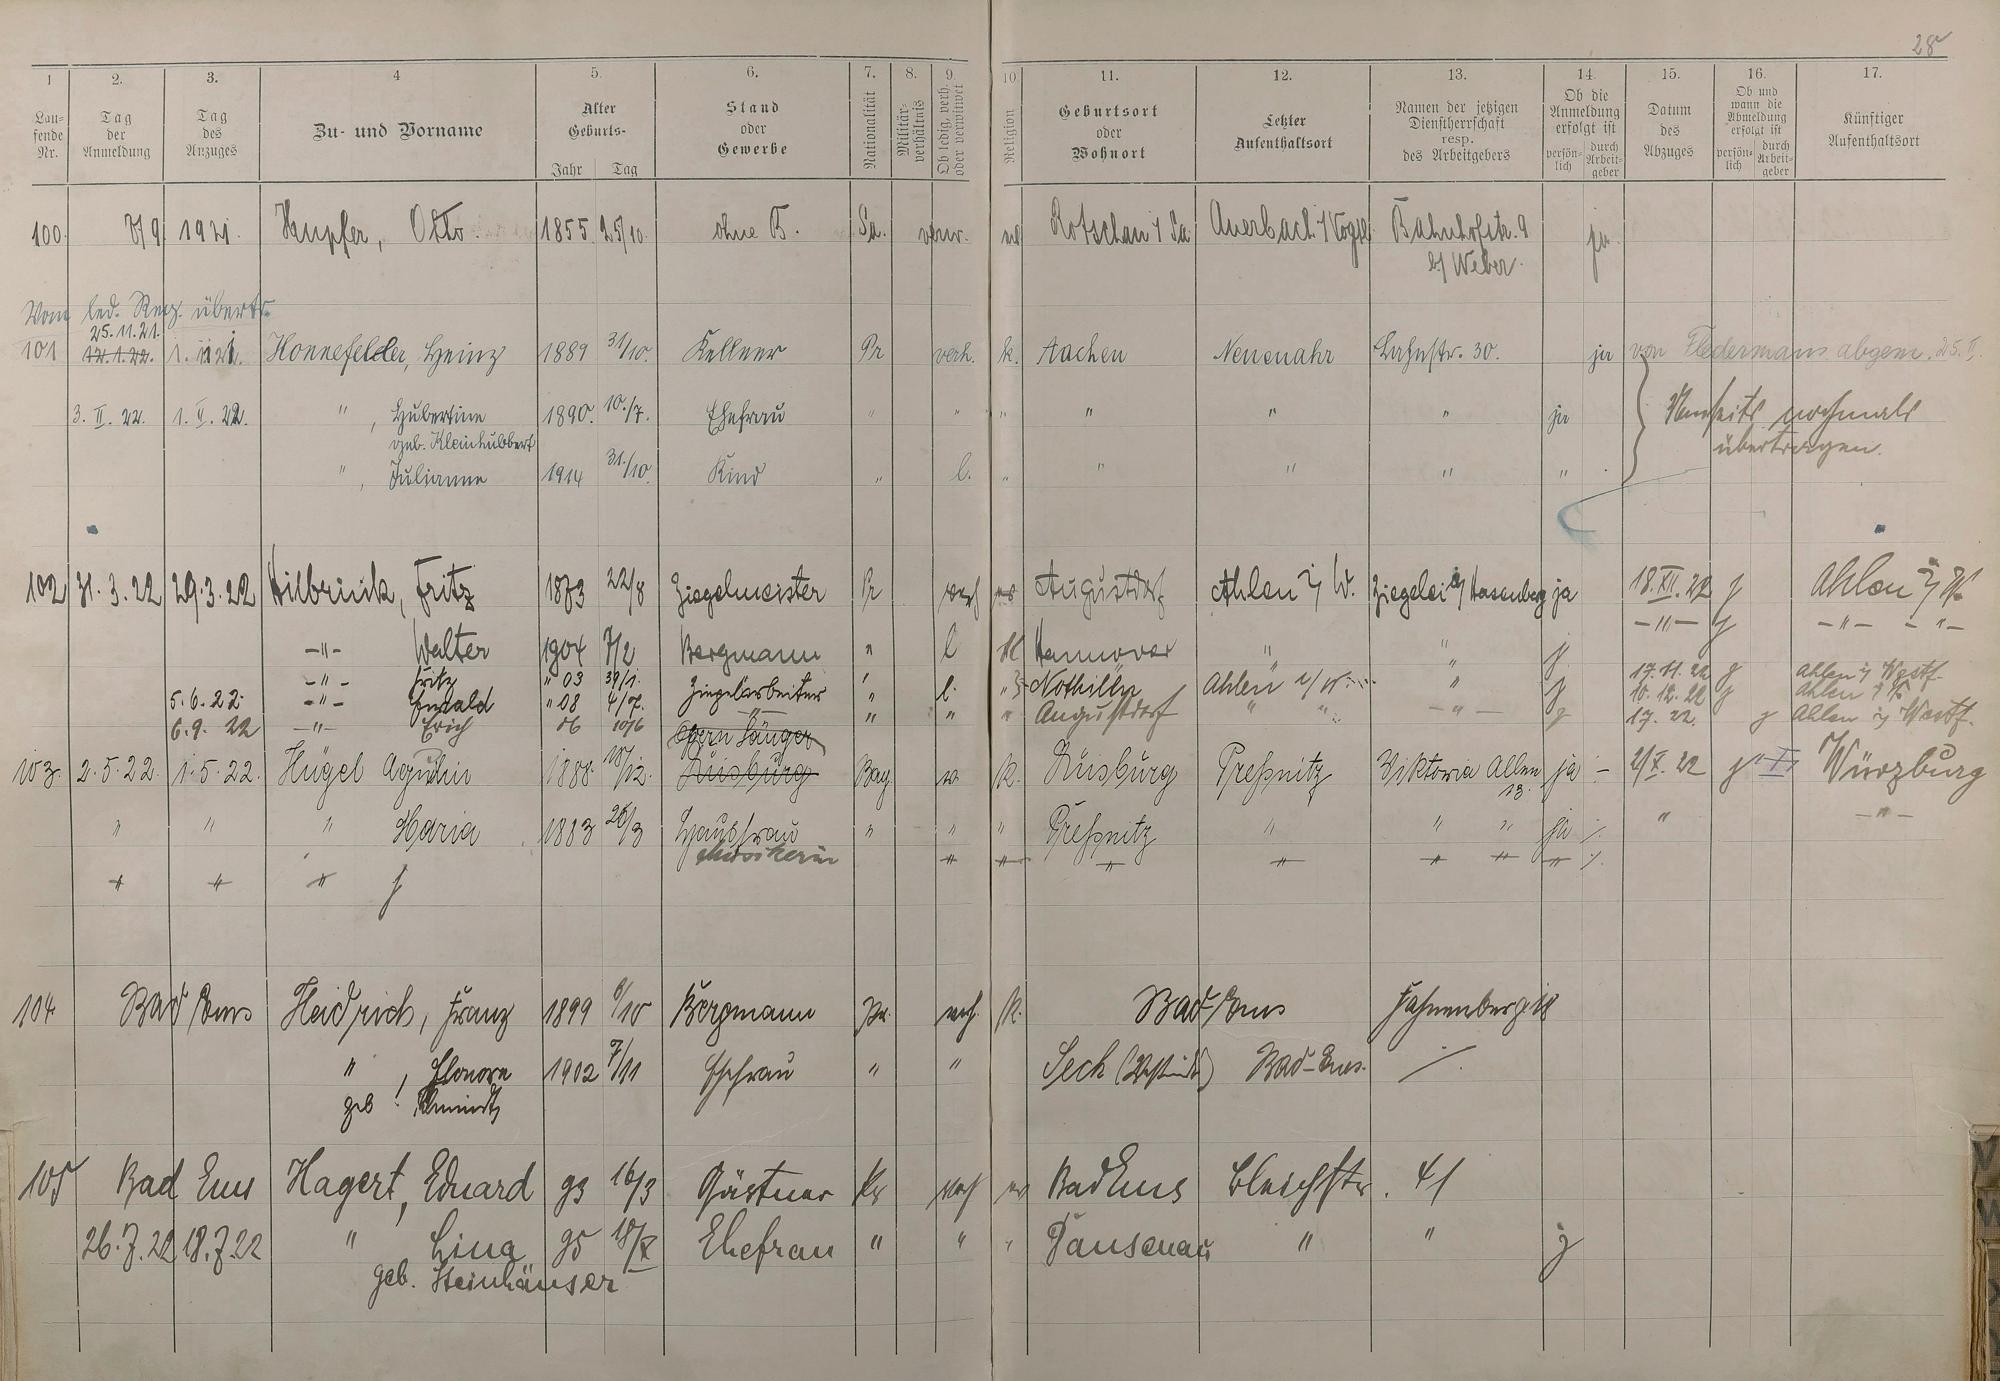 28
1 2. 3. 4 5. 6. 7. 8. 9. 10 11. 12. 13. 14. 15. 16. 17.
Laufende Nr. Tag der Anmeldung Tag des Anzuges Zu- und Vorname Alter Geburts- Jahr Tag Stand oder Gewerbe Nationalität Militärverhältnis Ob ledig, verh. oder verwitwet Religion Geburtsort oder Wohnort Letzter Aufenthaltsort Namen der jetzigen Dienstherrschaft resp. des Arbeitgebers Ob die Anmeldung erfolgt ist persönlich durch Arbeitgeber Datum des Abzuges Ob und wann die Abmeldung erfolgt ist persönlich durch Arbeitgeber Künftiger Aufenthaltsort
100. 7/9 1921. Hupfer, Otto 1855. 25/10. ohne B. Sa. verw. Rotschau i/Sa Auerbach i/Vogtl Bahnhofstr. 9 ja
b/ Weber.
Vom led. Reg. übertr.
25.11.21.
101 12.1.22. 1.11.21. Honnefelder, Heinz 1889 31/10. Kellner Pr verh. k. Aachen Neuenahr Lahnstr. 30. ja von Fledermans abgem. 25.I.
3. II. 22. 1. II. 22. " , Hubertine 1890. 10./7. Ehefrau " " " " " " ja Umseits nochmals
geb. Kleinhubbert übertragen.
" , Julianne 1914 31./10. Kind " l. " " " " "
102 31.3.22 29.3.22 Hilbrink, Fritz 1873 22/8 Ziegelmeister Pr verh Augustdorf Ahlen i/W. Ziegelei a/ Hasenberg ja 18.XII.22 j Ahlen i/W.
-"- Walter 1904 7/2 Bergmann " l Hannover " " j -"- j -"- -"-
-"- Fritz " 03 Ziegelarbeiter " l. " Ahlen i/W. " j 17.11.22 j Ahlen i/ Westf.
5.6.22. -"- Ewald " 08 4/7. " " " j 10.12.22 j Ahlen i/W
6.9.22 -"- Erich 06 10/6 " " " Augustdorf " " -"- j 17. 22 j Ahlen i/ Westf.
Opern Sänger
103. 2.5.22. 1.5.22. Hügel 1888. 18/12. Duisburg Bay. k. Duisburg Preßnitz Viktoria Allee 13. ja - 2/X. 22 j Würzburg
" " " Maria 1883 26/3 Hausfrau " " " Preßnitz " " " ja " -"-
Musikerin " " " " " " "
" " "
104. Bad Ems Heidrich, Franz 1899 6/10 Bergmann Pr. verh. k. Bad-Ems Fahnenberg 18
" , Elonore 1902 7/11 Ehefrau " " Seck Bad-Ems.
geb. Schmidt
105 Bad Ems Hagert, Eduard 93 16/3 Gärtner Pr verh ev Bad Ems Bleichstr. 41
26.7.22 18.7.22 " Lina 95 18/X Ehefrau " " " Dausenau " " j
geb. Steinhäuser